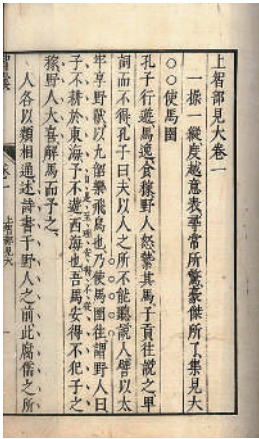 上智部見大卷一
一操一縱度越意表尋常所驚豪傑所了集見大
○○使馬圉
孔子行遊馬逸食稼野人怒縶其馬子貢往說之卑
詞而不得孔子曰夫以人之所不能聽說人譬以太
牢享野獸以九韶樂飛鳥也乃使馬圉往謂野人曰
子不耕於東海予不遊西海也吾馬安得不犯子之
自是至理安得不從
稼野人大喜解馬而予之
人各以類相通述詩書于野人之前此腐儒之所
智囊
卷一
上智部見大
一